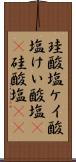 珪酸塩ケイ酸
塩けい酸塩
硅酸塩